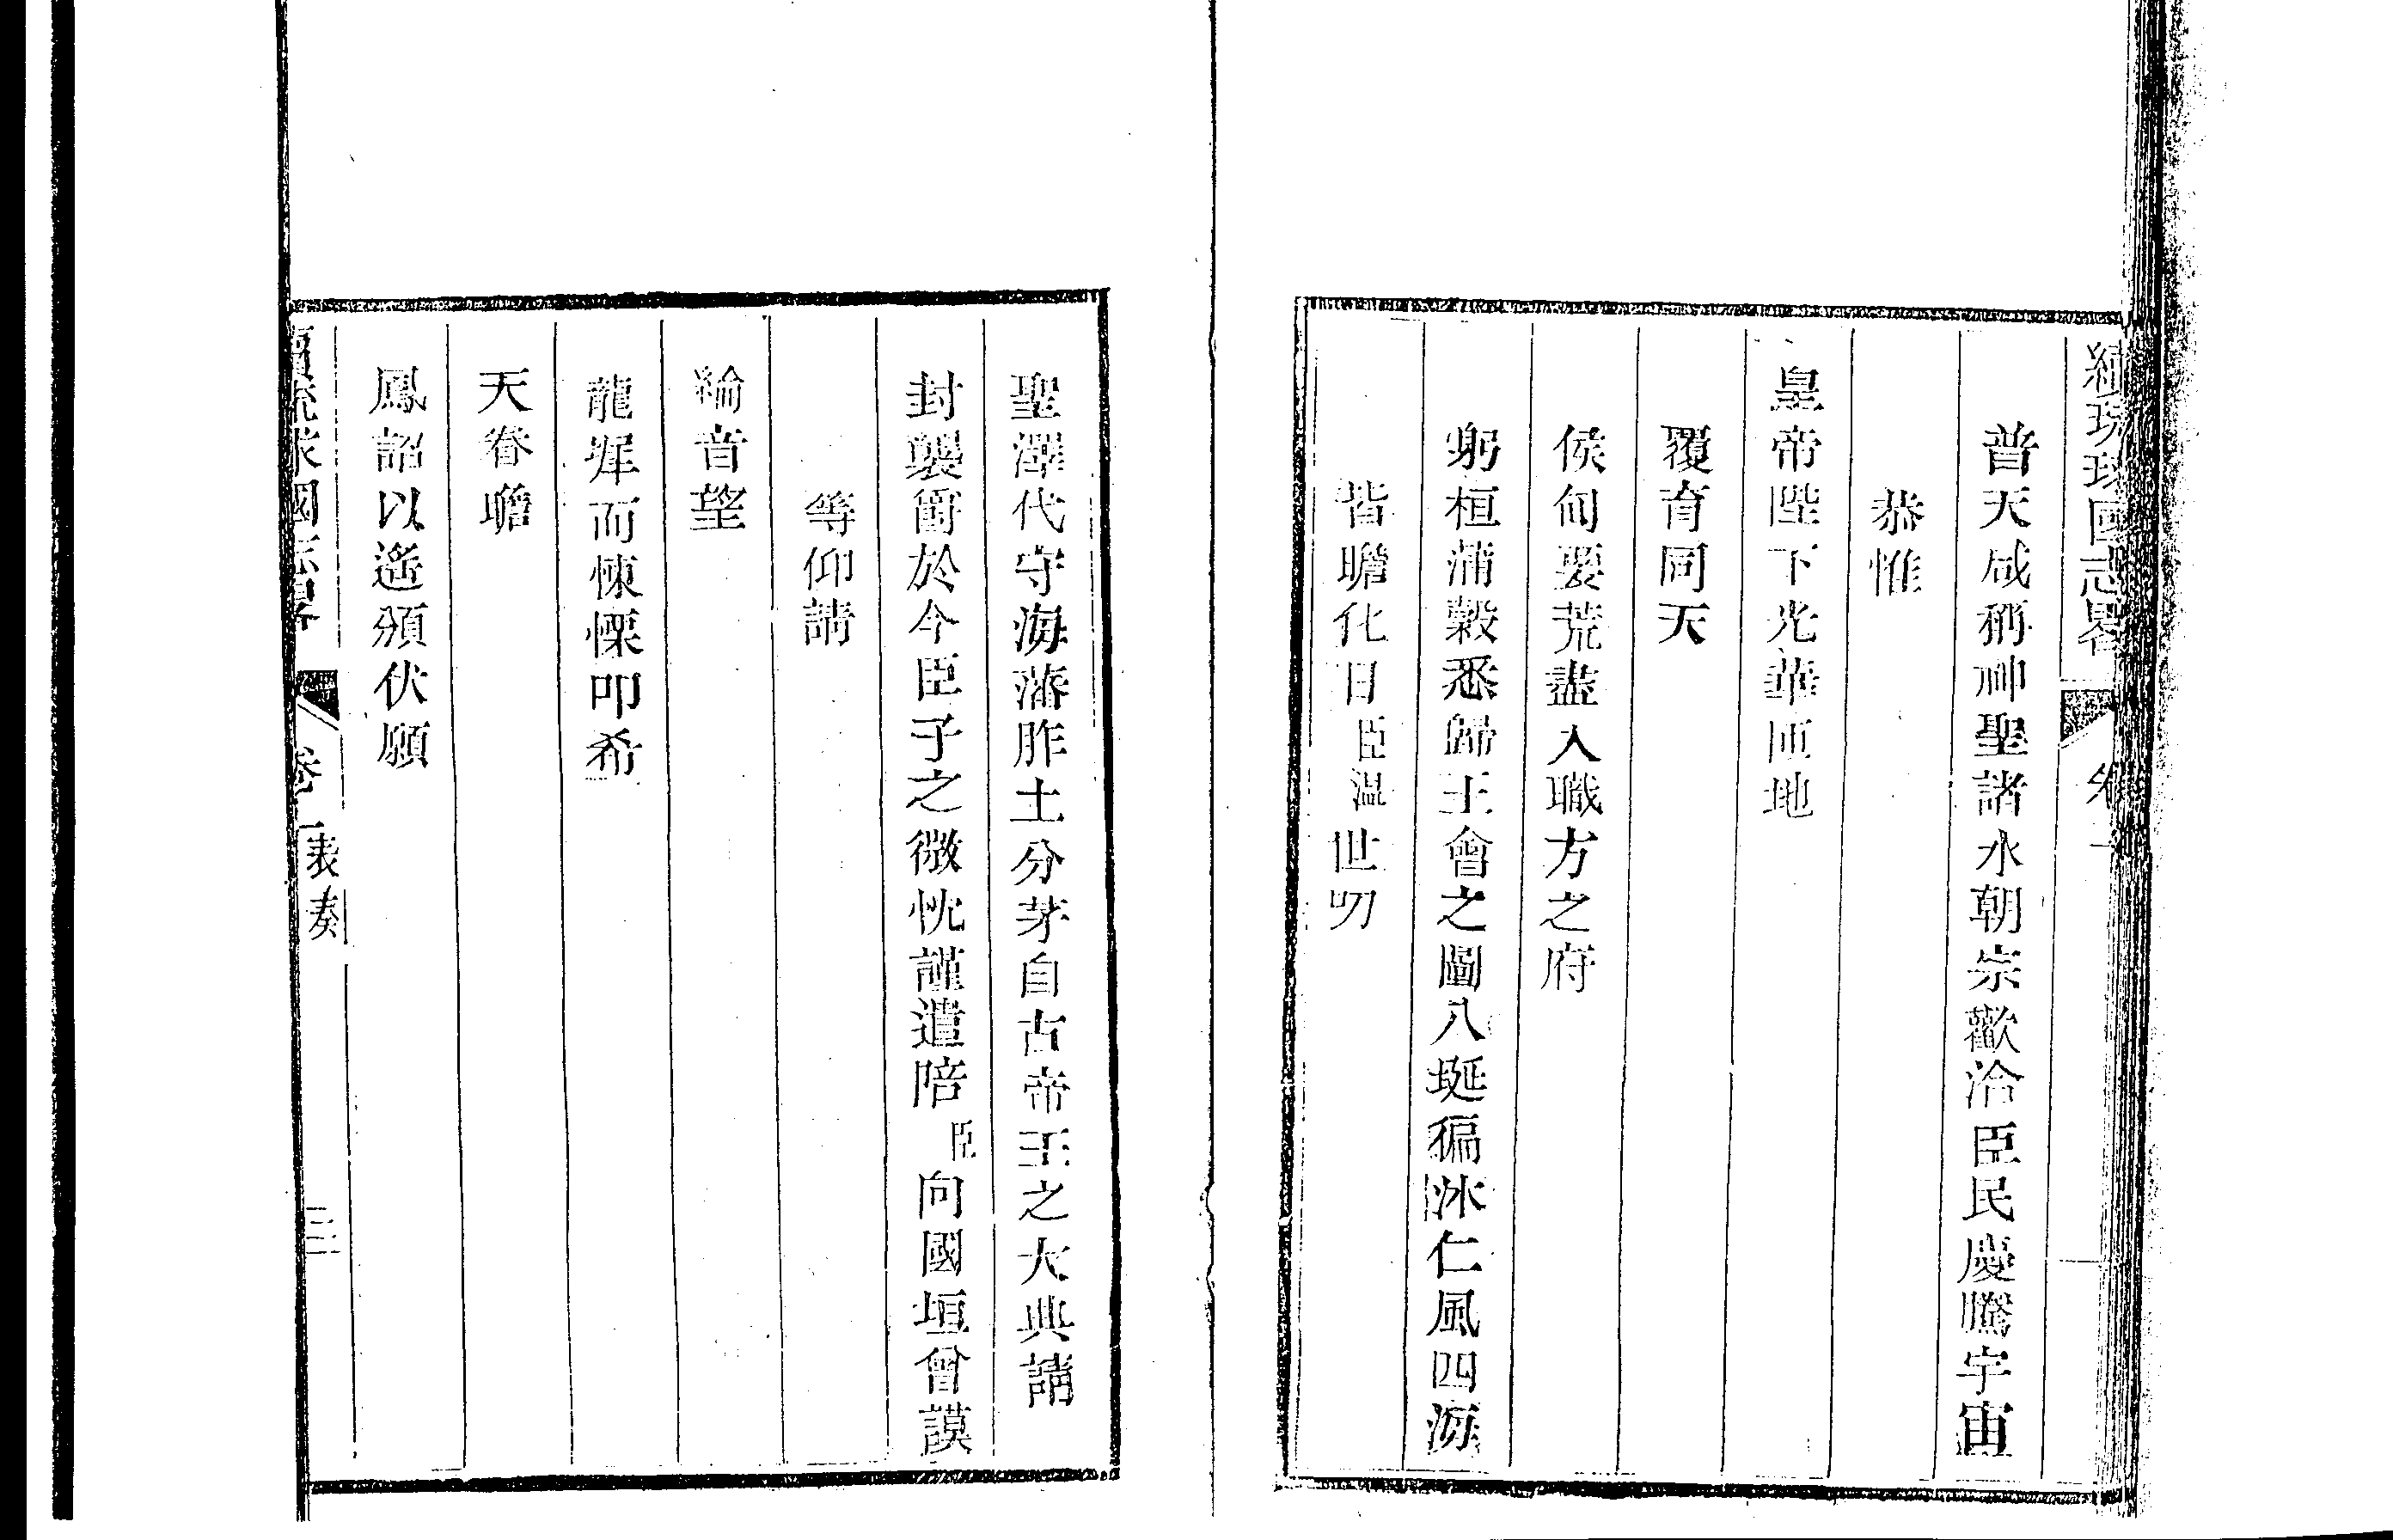 續琉球國志畧 卷一
普天咸稱神聖諸水朝宗歡洽臣民慶騰宇宙
恭惟
皇帝陛下光華匝地
覆育同天
侯甸要荒盡入職方之府
躬桓蒲穀悉歸王會之圖八埏徧沐仁風四海
皆瞻化日臣温世叨
聖澤代守海藩胙土分茅自古帝王之大典請
封襲爵於今臣子之微忱謹遣陪臣向國垣曾謨
等仰請
綸音望
龍墀而悚慄叩希
天眷瞻
鳳詔以遙頒伏願
續琉球國志畧 卷一 表奏 三